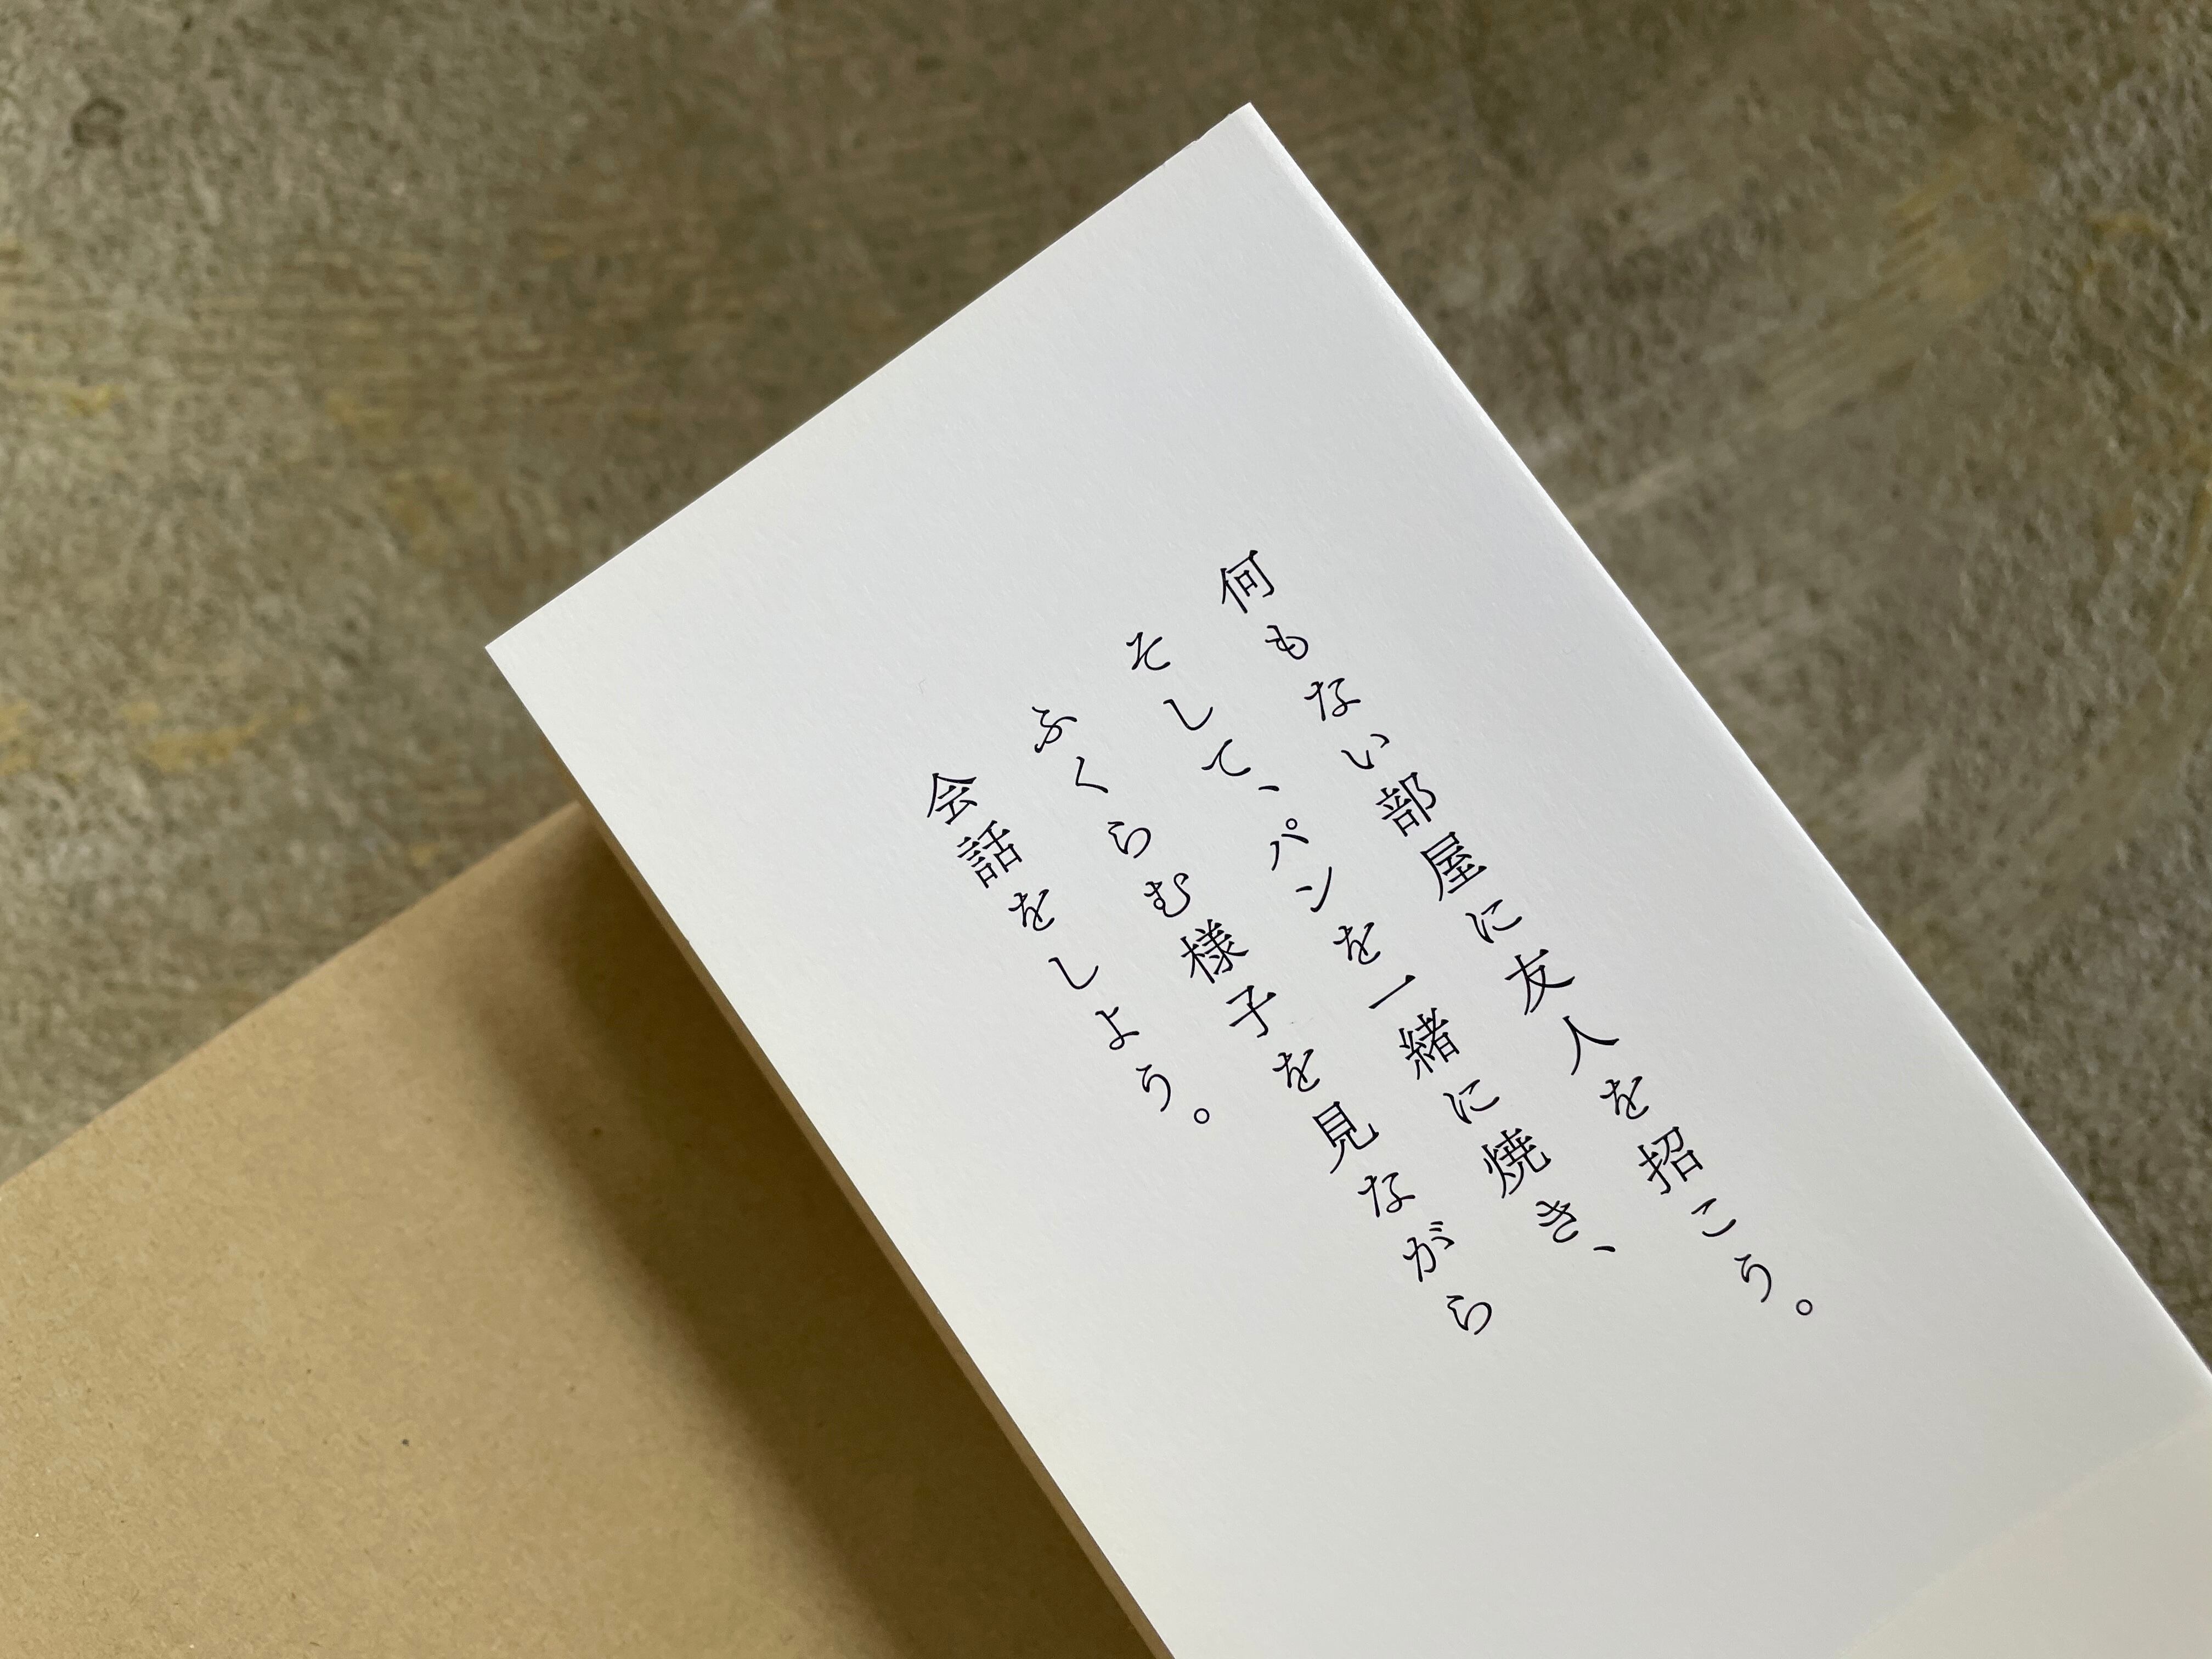 何もない部屋に友人を招こう。
そして、パンを一緒に焼き、
ふくらむ様子を見ながら
会話をしよう。